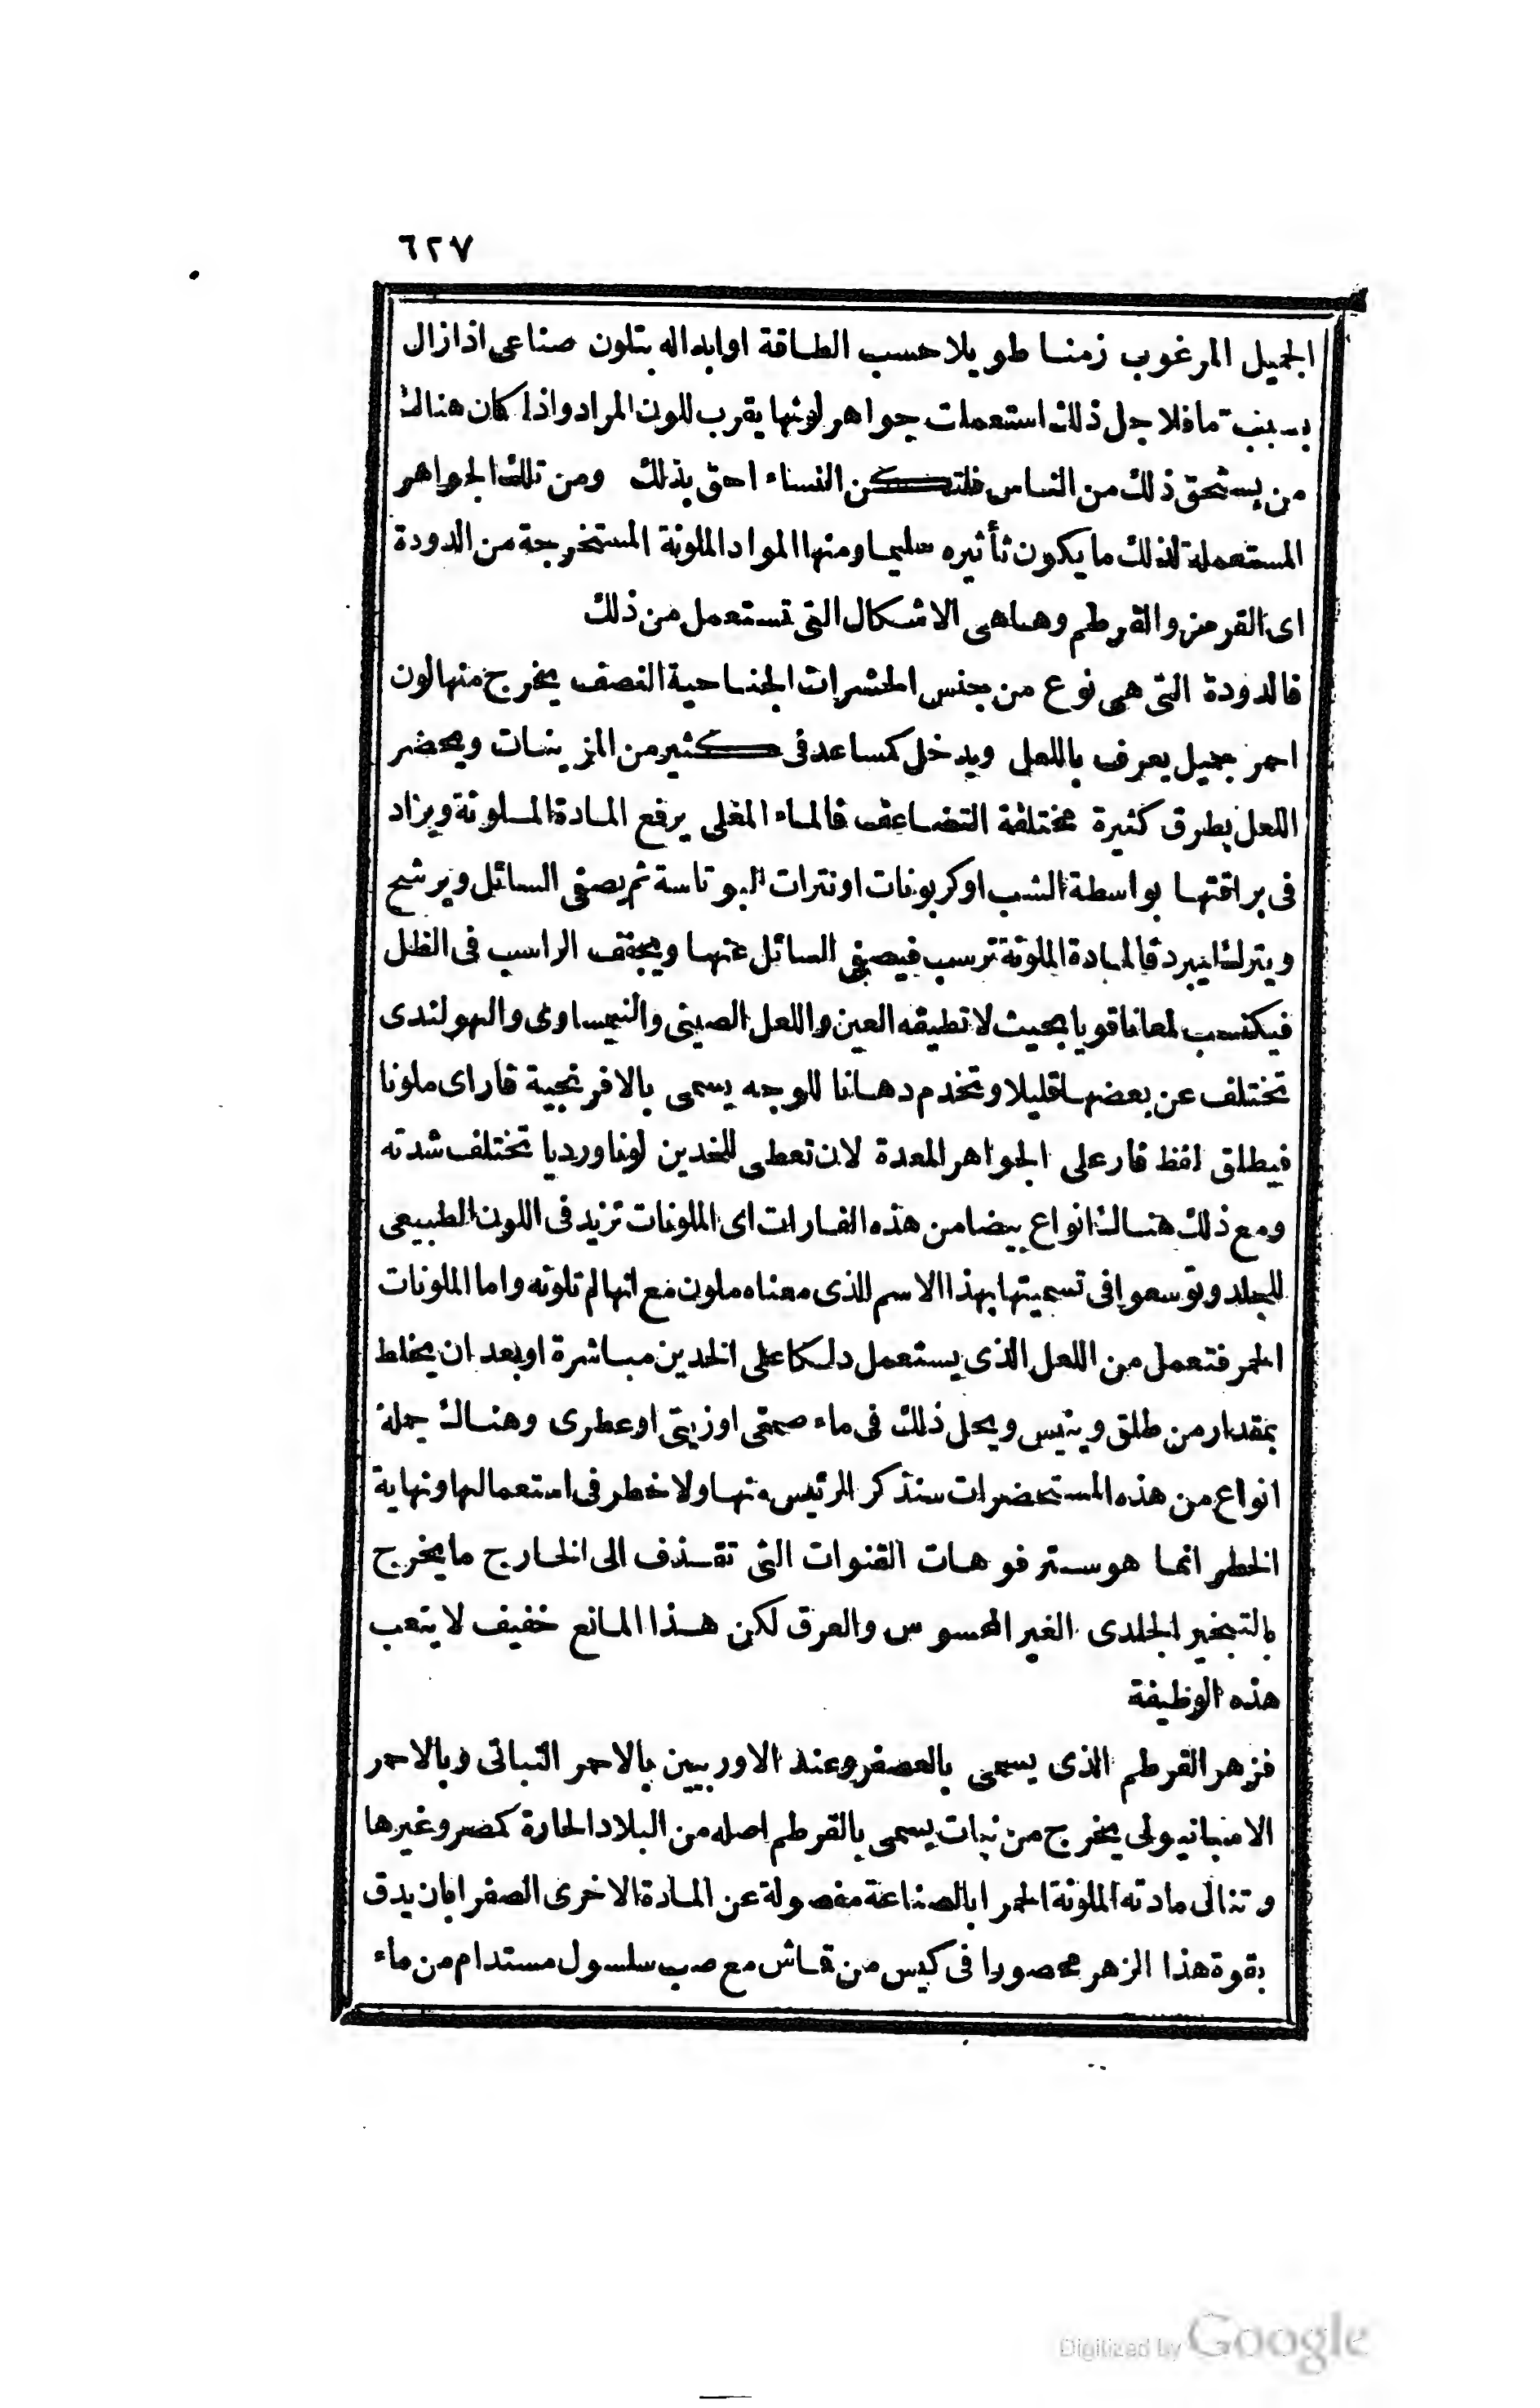 ٦٢٧
الجميل المرغوب زمنا طويلا حسب الطاقة او ابداله بتلون صناعى اذا زال
بسبب ما فلاجل ذلك استعملت جواهر لونها يقرب للون المراد واذا كان هناك
من يستحق ذلك من الناس فلتكن النساء احق بذلك ومن تلك الجواهر
المستعملة لذلك ما يكون تأثيره سليما ومنها المواد الملونة المستخرجة من الدودة
اى القرمز والقرطم وهاهى الاشكال التى تستعمل من ذلك
فالدودة التى هى نوع من جنس الحشرات الجناحية النصف يخرج منها لون
احمر جميل يعرف باللعل ويدخل كمساعد فى كثير من المزينات ويحضر
اللعل بطرق كثيرة مختلفة التضاعف فالماء المغلى يرفع المادة الملونة ويزاد
فى براقتها بواسطة الشب او كربونات او نترات البوتاسة ثم يصفى السائل ويرشح
ويترك ليبرد فالمادة الملونة ترسب فيصفى السائل عنها ويجفف الراسب فى الظل
فيكتسب لمعانا قويا بحيث لا تطيقه العين واللعل الصينى والنيمساوى والهولندى
تختلف عن بعضها قليلا وتخدم دهانا للوجه يسمى بالافرنجية فاراى ملونا
فيطلق لفظ فار على الجواهر المعدة لان تعطى للخدين لونا ورديا تختلف شدته
ومع ذلك هناك انواع بيضا من هذه الفارات اى الملونات تزيد فى اللون الطبيعى
للجلد وتوسعوا فى تسميتها بهذا الاسم الذى معناه ملون مع انها لم تلونه واما الملونات
الحمر فتعمل من اللعل الذى يستعمل دلكا على الخدين مباشرة او بعد ان يخلط
بمقدار من طلق وينيس ويحل ذلك فى ماء صمغى او زيتى او عطرى وهناك جملة
انواع من هذه المستحضرات سنذكر الرئيس منها ولا خطر فى استعمالها ونهاية
الخطر انما هو ستر فوهات القنوات التى تقذف الى الخارج ما يخرج
بالتبخير الجلدى الغير المحسوس والعرق لكن هذا المانع خفيف لا يتعب
هذه الوظيفة
فزهر القرطم الذى يسمى بالعصفر وعند الاوربيين بالاحمر النباتى وبالاحمر
الاسبانيولى يخرج من نبات يسمى بالقرطم اصله من البلاد الحارة كمصر وغيرها
وتنال مادته الملونة الحمرا بالصناعة مفصولة عن المادة الاخرى الصفرا بان يدق
بقوة هذا الزهر محصورا فى كيس من قماش مع صب سلسول مستدام من ماء
Digitized by Google